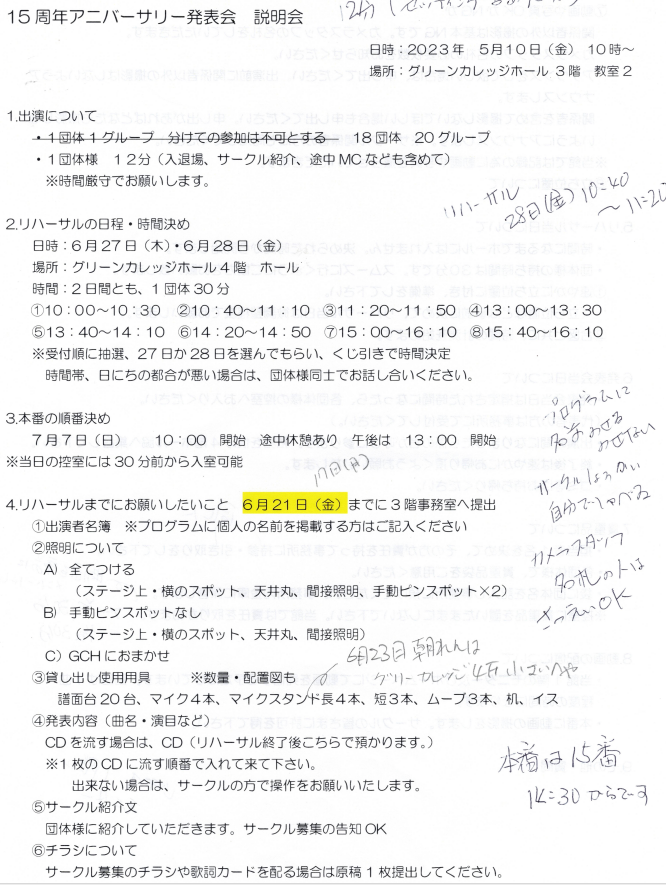 12分(
15周年アニバーサリー発表会 説明会
日時:2023年 5月10日(金) 10時～
場所:グリーンカレッジホール3階 教室2
1.出演について
・1団体1グループ 分けての参加は不可とする 18団体 20グループ
・1団体様 12分(入退場、サークル紹介、途中MCなども含めて)
※時間厳守でお願いします。
リハーサル
28日(金)10:40
～11:20
2.リハーサルの日程・時間決め
日時:6月27日(木)・6月28日(金)
場所:グリーンカレッジホール4階 ホール
時間:2日間とも、1団体30分
①10:00～10:30 ②10:40～11:10 ③11:20～11:50 ④13:00～13:30
⑤13:40～14:10 ⑥14:20～14:50 ⑦15:00～16:10 ⑧15:40～16:10
※受付順に抽選、27日か28日を選んでもらい、くじ引きで時間決定
時間帯、日にちの都合が悪い場合は、団体様同士でお話し合いください。
3.本番の順番決め
7月7日(日) 10:00 開始 途中休憩あり 午後は 13:00 開始
※当日の控室には30分前から入室可能
プログラムに
名前のせる
のせない
サークルしょうかい
自分でしゃべる
カメラスタッフ
名札の人は
さつえいOK
17日(月)
4.リハーサルまでにお願いしたいこと 6月21日(金)までに3階事務室へ提出
①出演者名簿 ※プログラムに個人の名前を掲載する方はご記入ください
②照明について
A) 全てつける
(ステージ上・横のスポット、天井丸、間接照明、手動ピンスポット×2)
B) 手動ピンスポットなし
(ステージ上・横のスポット、天井丸、間接照明)
C) GCHにおまかせ
6月23日朝れんは
グリーンカレッジ4F小さいへや
③貸し出し使用用具 ※数量・配置図も
譜面台20台、マイク4本、マイクスタンド長4本、短3本、ムーブ3本、机、イス
④発表内容(曲名・演目など)
CDを流す場合は、CD(リハーサル終了後こちらで預かります。)
※1枚のCDに流す順番で入れて来て下さい。
出来ない場合は、サークルの方で操作をお願いいたします。
本番は15番
14:30からです
⑤サークル紹介文
団体様に紹介していただきます。サークル募集の告知OK
⑥チラシについて
サークル募集のチラシや歌詞カードを配る場合は原稿1枚提出してください。